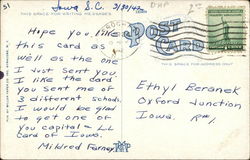 Iowa S.C. 3/30/42
51
THIS SPACE FOR WRITING MESSAGES
POST CARD
THIS SPACE FOR ADDRESS ONLY
Hope you like
this card as
well as the one
I just sent you.
I like the card
you sent me of
3 different schools.
I would be glad
to get one of
you capital - LL
Card of Iowa.
Mildred
Ethyl Beranek
Oxford Junction
Iowa,